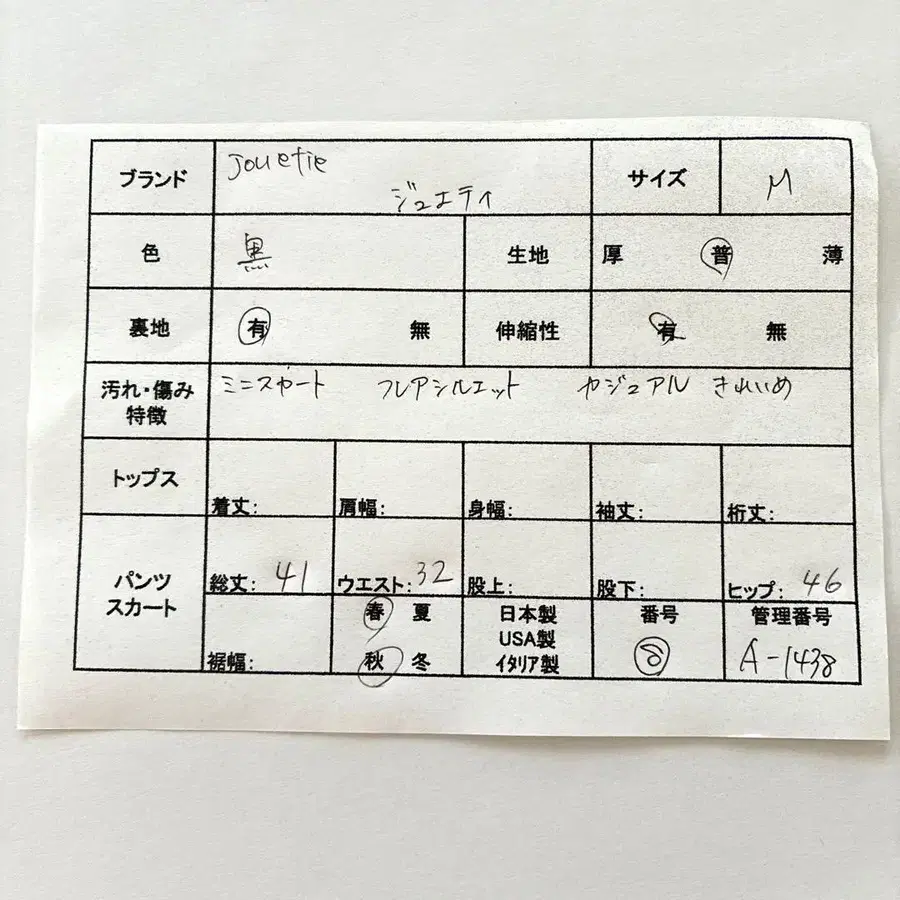 ブランド jouetie サイズ M
ジュエティ
色 黒 生地 厚 普 薄
裏地 有 無 伸縮性 有 無
汚れ・傷み ミニスカート フレアシルエット カジュアル きれいめ
特徴
トップス
着丈: 肩幅: 身幅: 袖丈: 裄丈:
パンツ
スカート
総丈: 41 ウエスト: 32 股上: 股下: ヒップ: 46
春 夏 日本製 番号 管理番号
USA製
裾幅: 秋 冬 イタリア製 8 A-1438